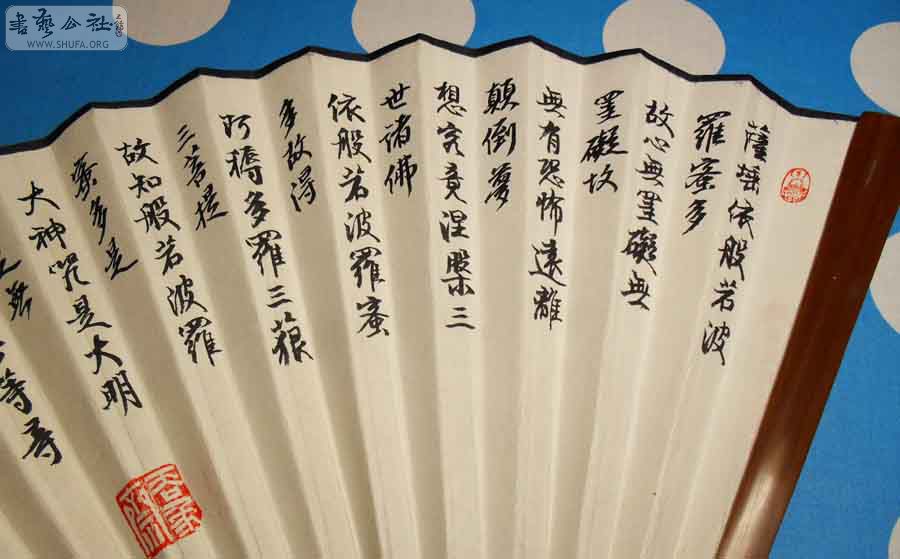 書藝公社
WWW.SHUFA.ORG
薩埵依般若波
羅蜜多
故心無罣礙無
罣礙故
無有恐怖遠離
顛倒夢
想究竟涅槃三
世諸佛
依般若波羅蜜
多故得
阿耨多羅三藐
三菩提
故知般若波羅
蜜多是
大神咒是大明
等等